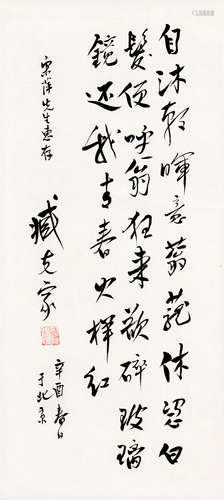 自沐朝暉意蓊蘢休凭白
髮便呼翁狂来欲碎玻璃
鏡还我青春火样紅
宗萍先生惠存
臧克家
辛酉春日
于北京